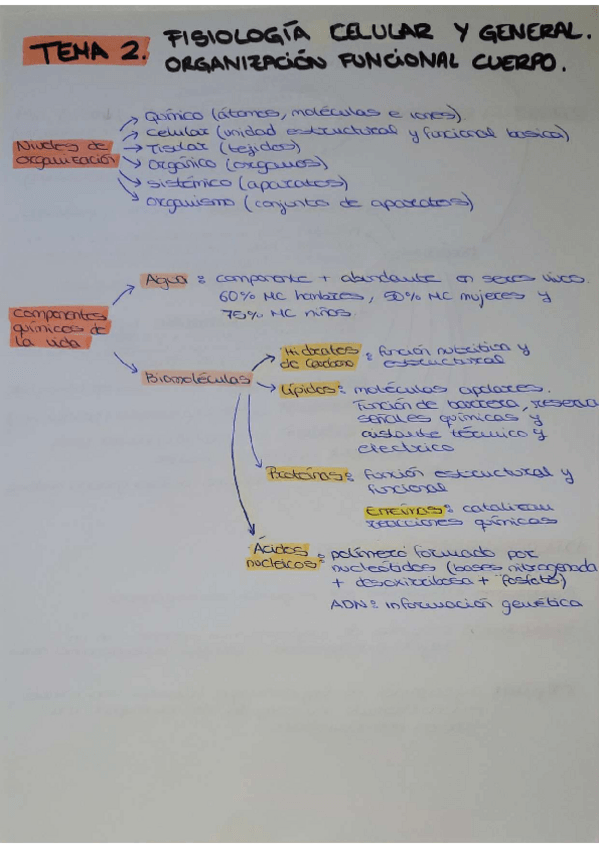 TEMA 2. FISIOLOGÍA CELULAR Y GENERAL.
ORGANIZACIÓN FUNCIONAL CUERPO.
Niveles de
organización
Químico (átomos, moléculas e iones)
Celular (unidad estructural y funcional basica)
Tisular (tejidos)
Orgánico (organos)
Sistémico (aparatos)
Organismo (conjunto de aparatos)
Componentes
químicos de
la vida
Agua : componente + abundante en seres vivos.
60% MC hombres, 50% MC mujeres y
75% MC niños
Biomoléculas
Hidratos
de Carbono : función nutritiva y
estructural
Lípidos : moléculas apolares.
Función de barrera, reserva
señales químicas y
aislante térmico y
electrico
Proteínas : función estructural y
funcional
Enzimas : catalizan
reacciones químicas
Ácidos
nucleicos : polímero formado por
nucleótidos (bases nitrogenada
+ desoxirribosa + fosfato)
ADN : información genética